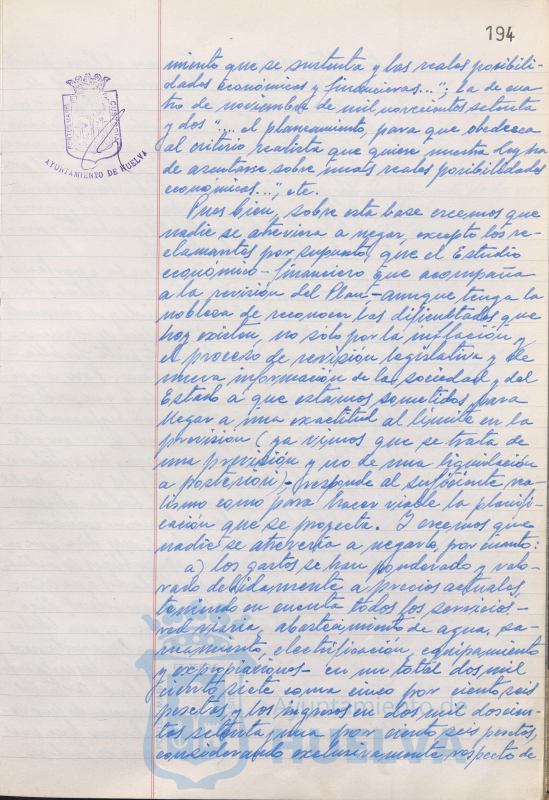 194
miento que se sustenta y las reales posibili-
dades económicas y financieras..."; la de cua
tro de noviembre de mil novecientos setenta
y dos "... el planeamiento, para que obedezca
al criterio realista que quiere nuestra ley ha
de asentarse sobre unas reales posibilidades
económicas...", etc.
Pues bien, sobre esta base creemos que
nadie se atreviera a negar, excepto los re-
clamantes por supuesto, que el Estudio
económico-financiero que acompaña
a la revisión del Plan - aunque tenga la
nobleza de reconocer las dificultades que
hoy existen, no sólo por la inflación y
el proceso de revisión legislativa y de
nueva información de la sociedad y del
Estado a que estamos sometidos, para
llegar a una exactitud al límite en la
previsión (ya vimos que se trata de
una previsión y no de una liquidación
a posteriori) - responde al suficiente rea-
lismo como para hacer viable la planifi-
cación que se proyecta. Y creemos que
nadie se atrevería a negarlo por cuanto:
a) los gastos se han ponderado y valo-
rado debidamente a precios actuales,
teniendo en cuenta todos los servicios -
red viaria, abastecimiento de agua, sa-
neamiento, electrificación, equipamiento
y expropiaciones - en un total dos mil
ciento siete coma cinco por ciento seis
pesetas, y los ingresos en dos mil doscien-
tos setenta, una por ciento seis pesetas,
considerando exclusivamente respecto de
AYUNTAMIENTO DE HUELVA
PORTUS MARIS ET TERRAE CUSTODIA
Ayuntamiento de
HUELVA